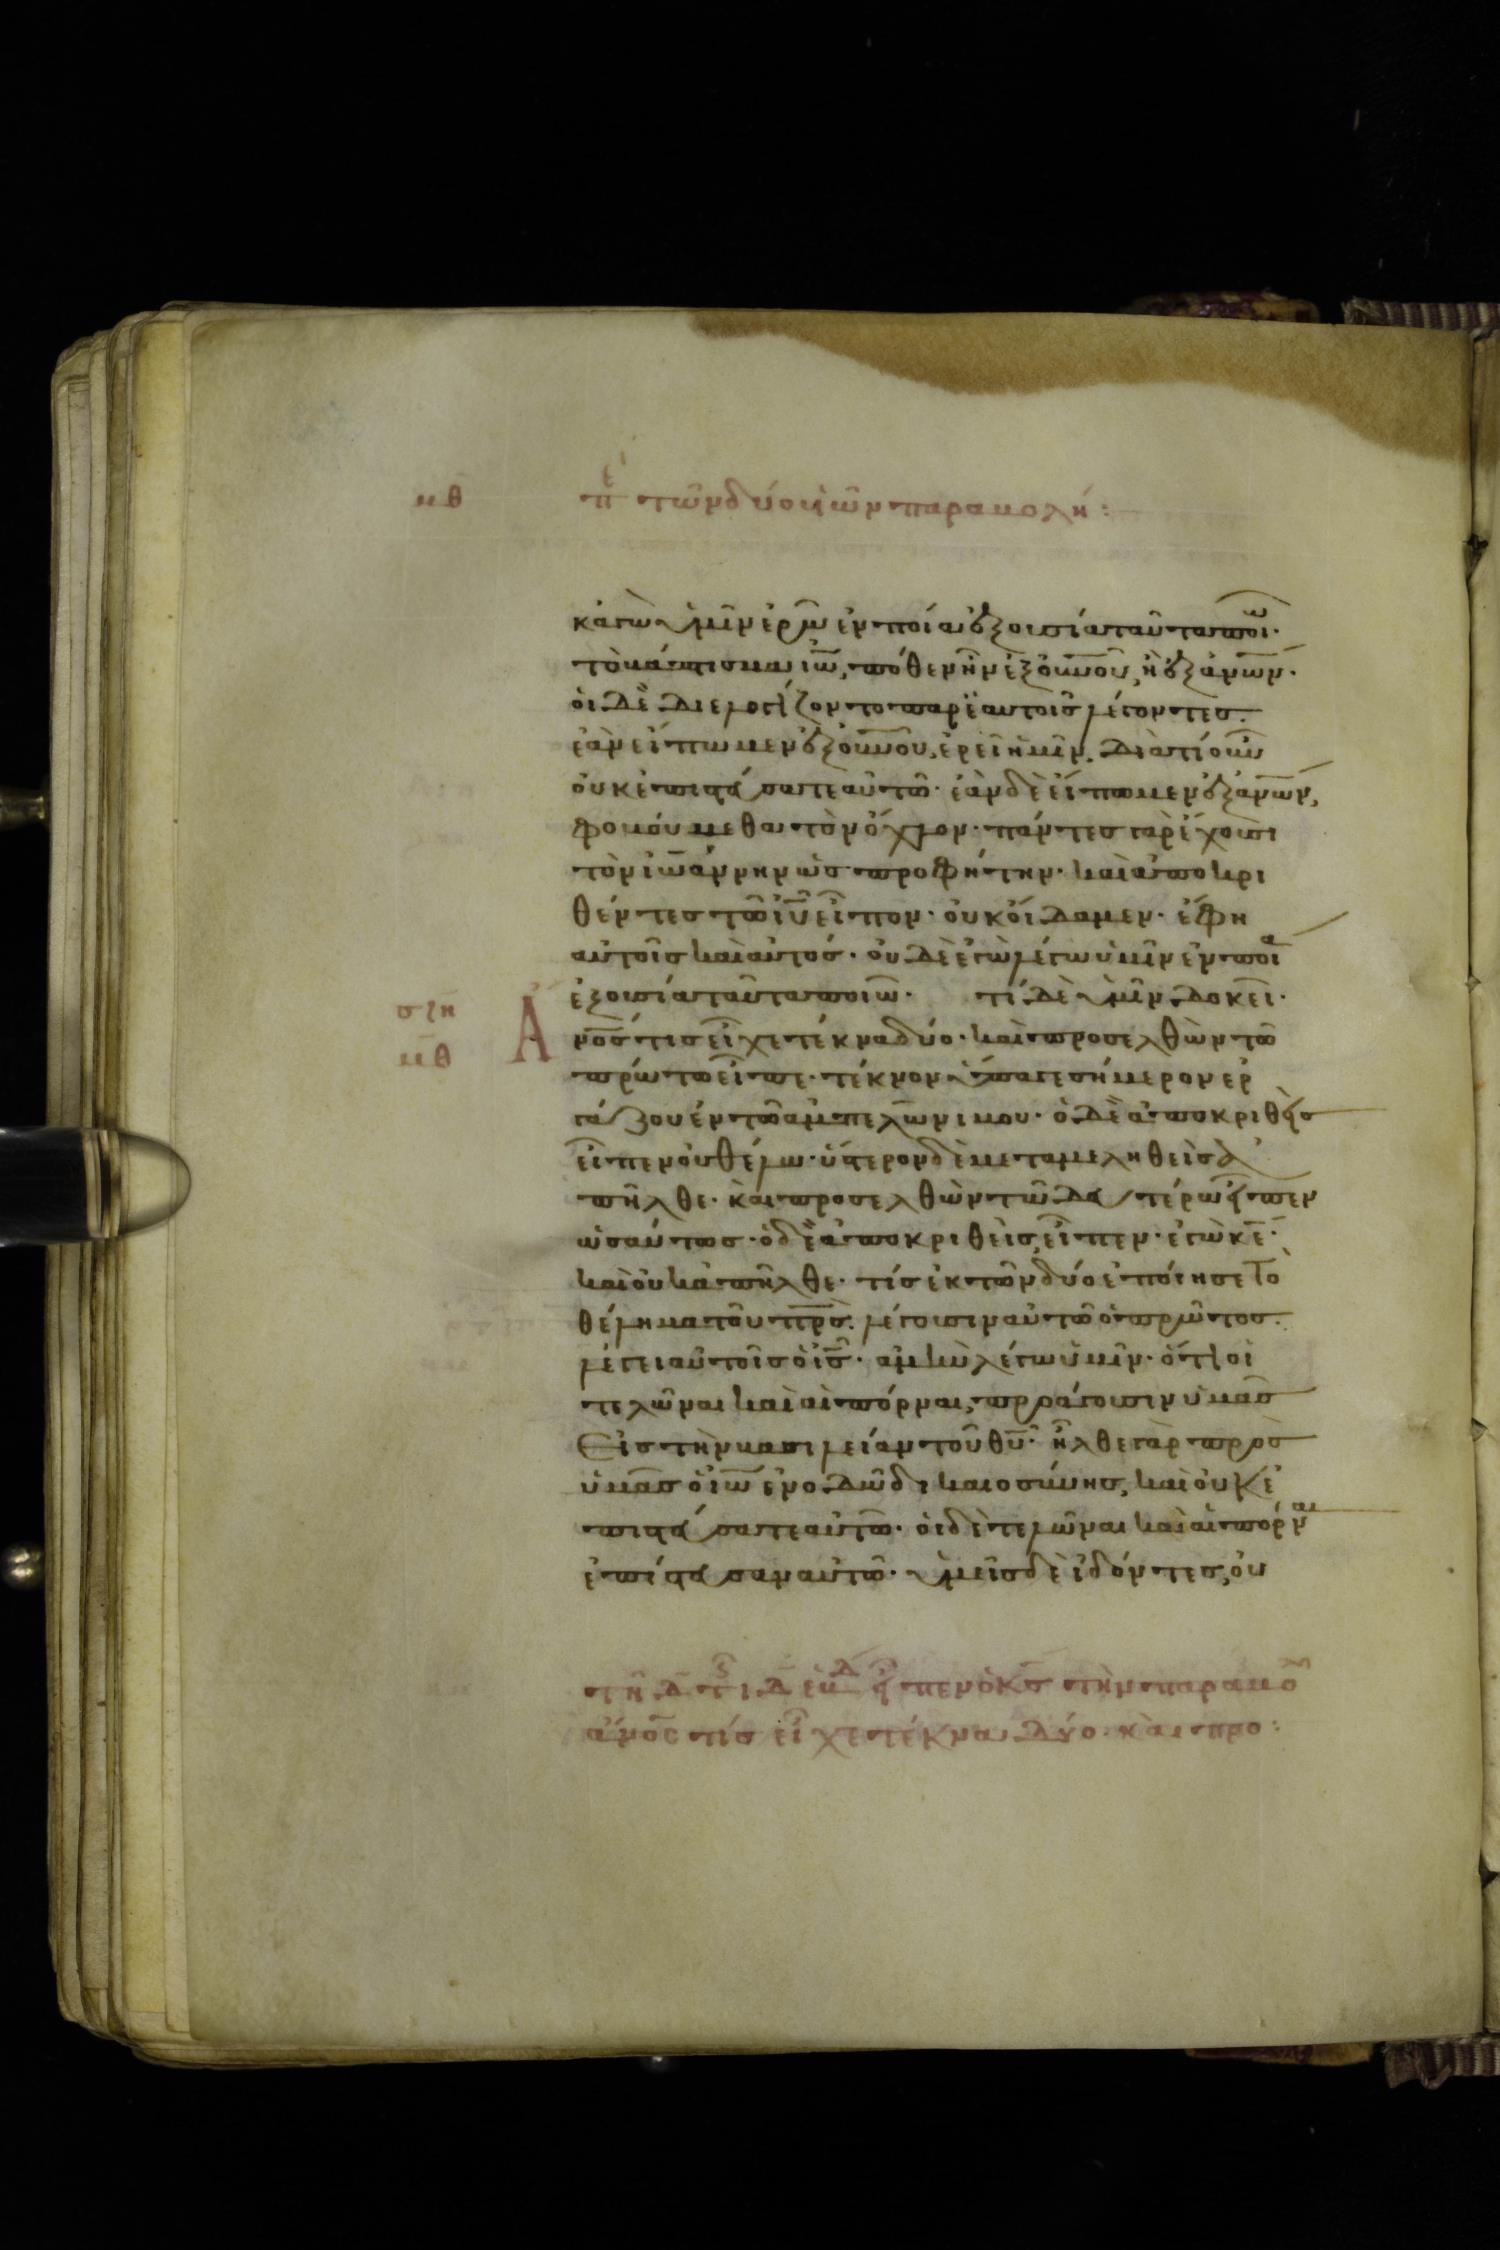 μθ πε τῶν δύο υἱῶν παραβολή:
κἀγὼ ὑμῖν ἐρῶ ἐν ποία ἐξουσία ταῦτα ποιῶ·
τὸ βάπτισμα ἰω̅, πόθεν ἦν ἐξ οὐν̅ου, ἢ ἐξ αν̅ων·
οἱ δὲ διελογίζοντο παρ' ἑαυτοῖς λέγοντες·
ἐὰν εἴπωμεν ἐξ οὐν̅ου, ἐρεῖ ἡμῖν, διατί οὖν
οὐκ ἐπιστεύσατε αὐτῶ· ἐὰν δὲ εἴπωμεν ἐξ αν̅ων,
φοβούμεθα τὸν ὄχλον· πάντες γὰρ ἔχουσι
τὸν ἰωάννην ὡς προφήτην· καὶ ἀποκρι
θέντες τῶ ιυ̅ εἶπον· οὐκ οἴδαμεν· ἔφη
αὐτοῖς καὶ αὐτός· οὐδὲ ἐγὼ λέγω ὑμῖν ἐν ποία
ἐξουσία ταῦτα ποιῶ· τί δὲ ὑμῖν δοκεῖ·
σξη
μθ
Ἄ
νο̅ς τις εἶχε τέκνα δύο· καὶ προσελθὼν τῶ
πρώτω εἶπε· τέκνον ὕπαγε σήμερον ἐρ
γάζου ἐν τῶ ἀμπελῶνι μου· ὁ δὲ ἀποκριθεὶς
εἶπεν οὐ θέλω· ὕστερον δὲ μεταμεληθεὶς ἀ
πῆλθε· καὶ προσελθὼν τῶ δευτέρω εἶπεν
ὡσαύτως· ὁ δὲ ἀποκριθεὶς εἶπεν· ἐγὼ κε̅·
καὶ οὐκ ἀπῆλθε· τίς ἐκ τῶν δύο ἐποίησε τὸ
θέλημα τοῦ πρ̅ς· λέγουσιν αὐτῶ ὁ πρῶτος·
λέγει αὐτοῖς ὁ ις̅· ἀμὴν λέγω ὑμῖν· ὅτι οἱ
τελῶναι καὶ αἱ πόρναι, προάγουσιν ὑμᾶς
εἰς τὴν βασιλείαν τοῦ θυ̅· ἦλθε γὰρ πρὸς
ὑμᾶς ὁ ἰω̅ ἐν ὁδῶ δικαιοσύνης, καὶ οὐκ ἐ
πιστεύσατε αὐτῶ· οἱ δὲ τελῶναι καὶ αἱ πόρναι
ἐπίστευσαν αὐτῶ· ὑμεῖς δὲ ἰδόντες, οὐ
εἶπεν ὁ κς̅ τὴν παραβο
αν̅ος τίς εἶχε τέκνα δύο· καὶ προ: